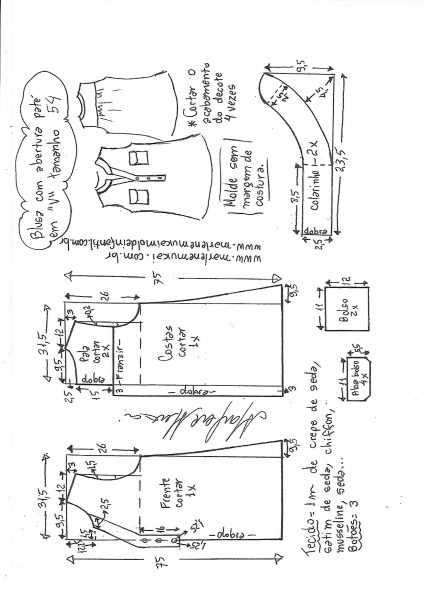 Blusa com abertura patê
em "V" tamanho 54
* Cortar o
acabamento
do decote
4 vezes
Molde sem
margem de
costura.
www.marlenemukai.com.br
www.marlenemukaimoldeinfantil.com.br
9,5
8,5
Colarinho 1-2x
23,5
dobra
2,5
75
26
31,5
12
3
9,5
2,5
Pala
cortar
2x
dobra
15
3-Franzir-
Costas
cortar
1x
-dobra-
3
9,5
12
11
Bolso
2x
11
5,5
Aba bolso
4x
31,5
12
3
26
9,5
2,5
Frente
cortar
1x
16
1,25
1,25
-dobra-
9,5
75
Tecido= 1m de crepe de seda,
satim de seda, chiffon,
musseline, seda...
Botões= 3